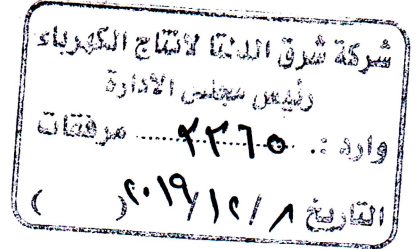 شركة شرق الدلتا لانتاج الكهرباء
رئيس مجلس الادارة
وارد :. ٣٣٦٥ ........ مرفقات
التاريخ ٨ / ١٢ / ٢٠١٩ ( )